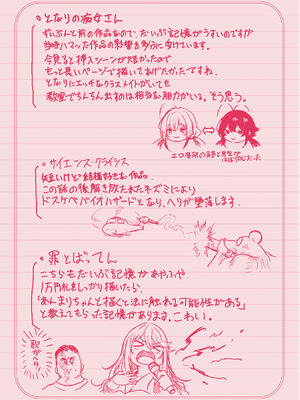 ・となりの痴女さん
ずいぶんと前の作品なので、だいぶ記憶がうすいのですが
当時ハマった作品の影響を多分に受けています。
今見ると挿入シーンが短かったので
もっと長いページで描いてあげたかったですね。
となりにエッチなクラスメイトがいても
教室でちんちん出すのは相当な胆力がいる。そう思う。
・サイエンス・クライシス
短いけど結構好きな作品。
この話の後解き放たれたネズミにより
ドスケベバイオハザードとなり、ヘリが墜落します。
・罪とばってん
こちらもだいぶ記憶があやふや
1万円札をしっかり描いたら、
「あんまりちゃんと描くと法に触れる可能性がある」
と教えてもらった記憶があります。こわい。